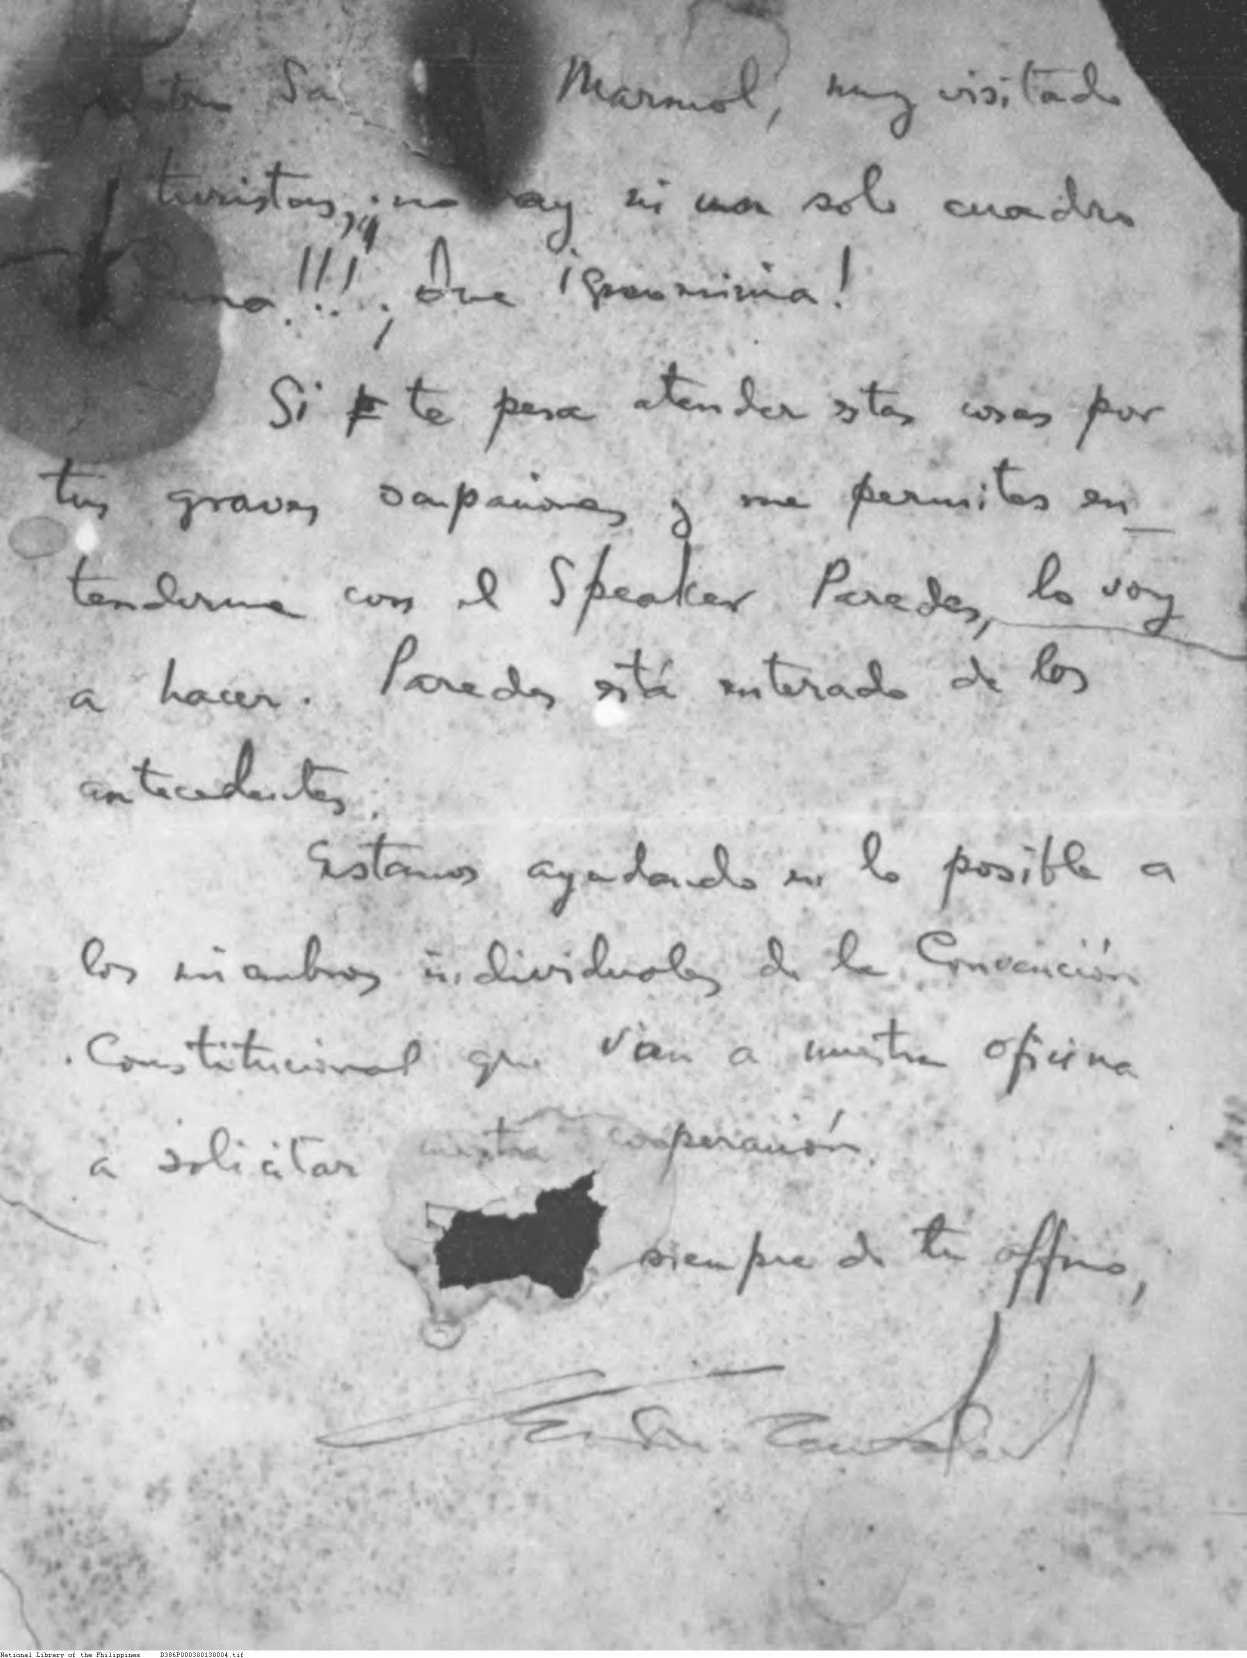 Sa Marmol, muy visitado
turistas, ¡no hay ni una solo cuadro
una!!! ¡Que ignominia!
Si te pesa atender estas cosas por
tus graves ocupaciones y me permites en-
tenderme con el Speaker Paredes, lo voy
a hacer. Paredes está enterado de los
antecedentes.
Estamos ayudando en lo posible a
los miembros individuales de la Convención
Constitucional que van a nuestra oficina
a solicitar nuestra cooperación.
siempre de tu affmo,
National Library of the Philippines D386P000380138004.tif